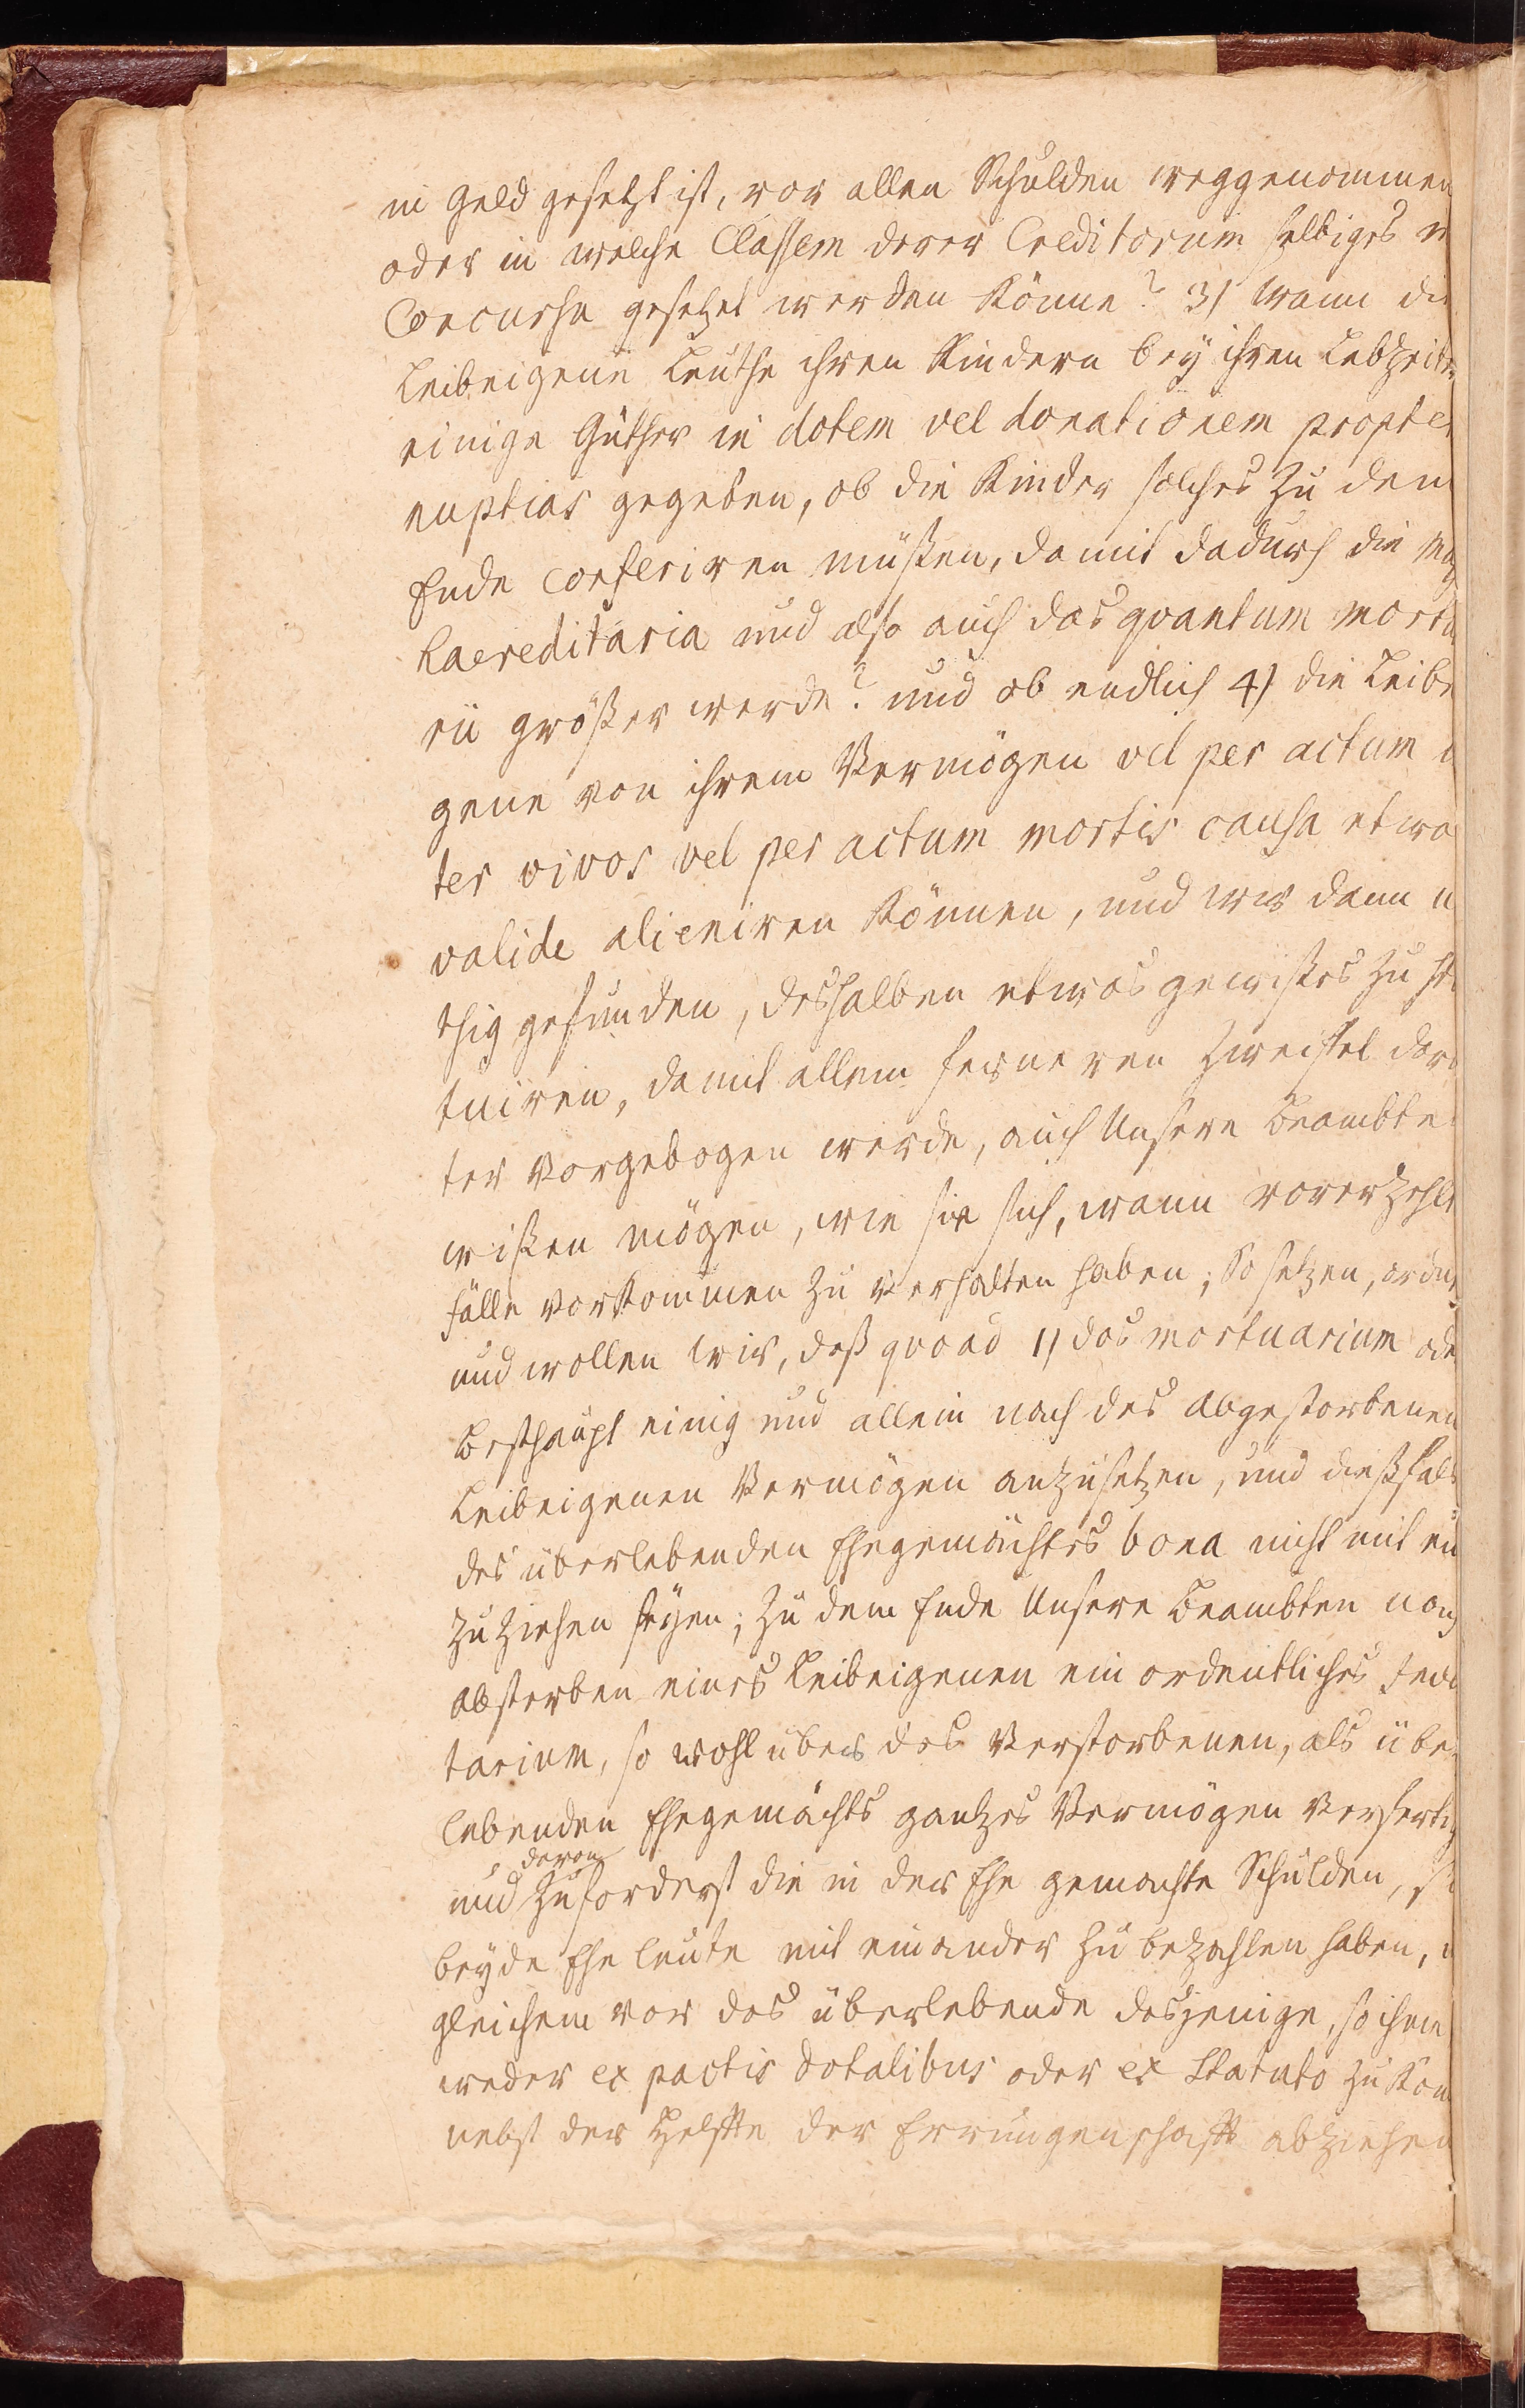 in Geld gesetzt ist, vor allen Schulden weggenommen
oder in welche Classem derer Creditorum selbiges
Concurse gesetzet werden könne? 3) wann die
Leibeigene Leuthe ihren Kindern bey ihren Lebzeiten
einige Güther in dotem vel donationem propter
nuptias gegeben, ob die Kinder solches zu dem
Ende conferiren müßen, damit dadurch die
haereditaria und also auch das quantum mortu
rii größer werde? und ob endlich 4) die Leibei
gene von ihrem Vermögen vel per actum
ter vivos vel per actum mortis causa etwas
valide alieniren können, und wir dann
thig gefunden, deshalben etwas gewißes zu sta
tuiren, damit allem ferneren Zweiffel darun
ter vorgebogen werde, auch Unsere Beambte
wißen mögen, wie sie sich, wann vorerzehlte
fälle vorkommen zu verhalten haben; So setzen, ordnen
und wollen wir, daß quoad 1) das mortuarium oder
Besthaupt einig und allein nach des abgestorbenen
Leibeigenen Vermögen anzusetzen, und dießfals
des überlebenden Ehegemächtes bona nicht mit ein
zuziehen seyen; zu dem Ende Unsere Beambten nach
absterben eines Leibeigenen ein ordentliches Inven
tarium, so wohl über des Verstorbenen, als über
lebenden Ehegemächts gantzes Vermögen verfertig
davon
und zuforderst die in der Ehe gemachte Schulden,
beyde Eheleute mit einander zu bezahlen haben,
gleichem vor das überlebende dasjenige, so ihm
weder ex pactis dotalibus oder ex Statuto zukom
nebst der Helffte der Errungenschafft abziehen